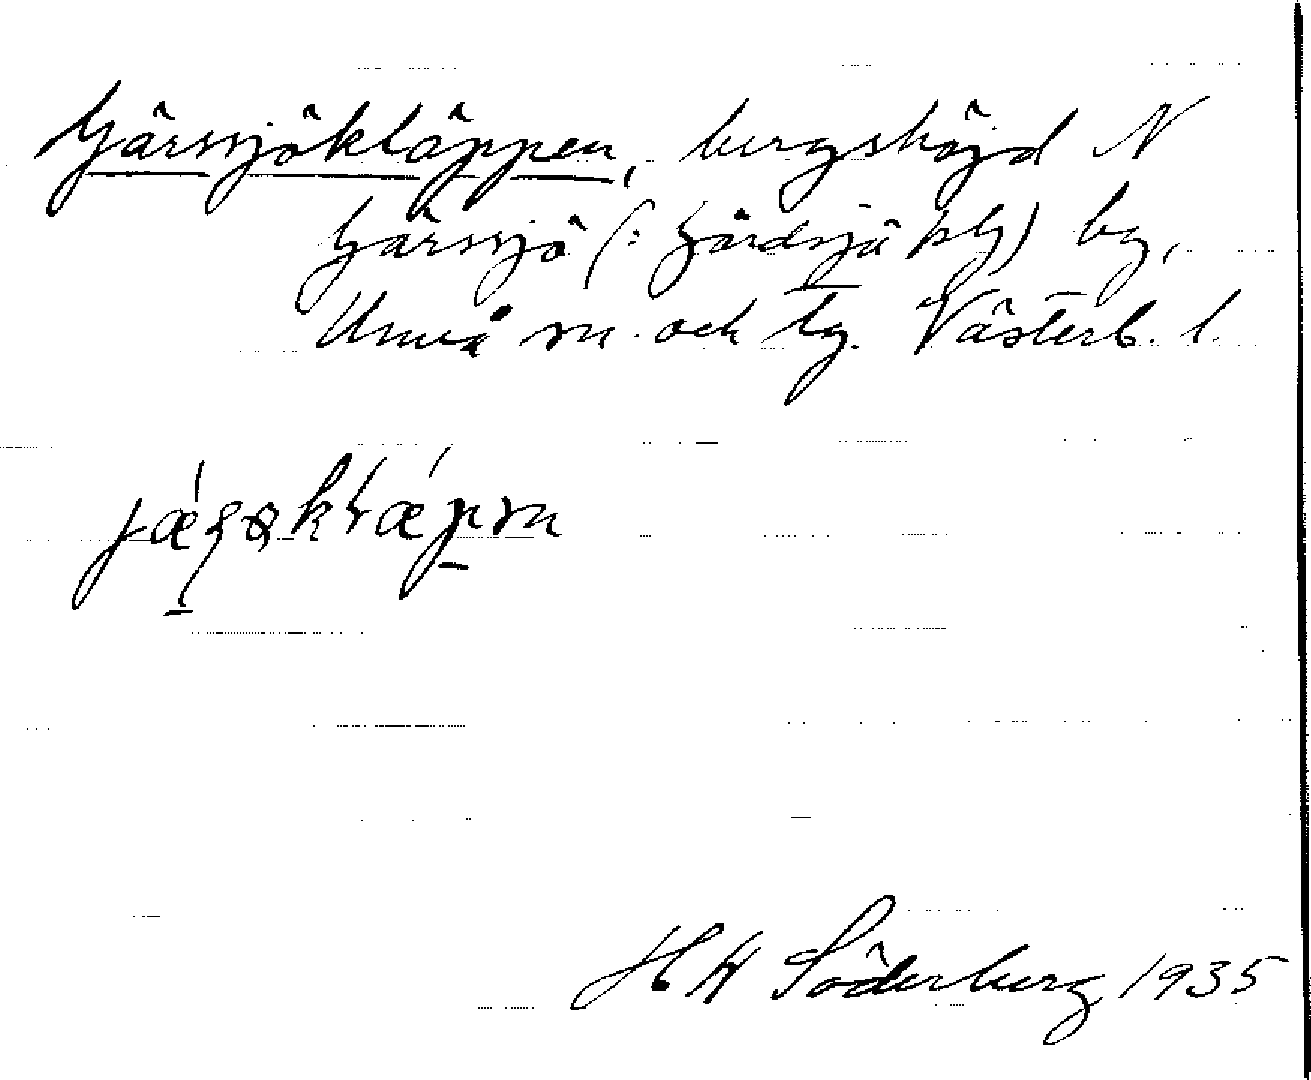 Gärssjökläppen, bergshöjd N
Gärssjö (: Gärdsjö
by,
Umeå sn och tg. Västerb. l.
H W Söderberg 1935